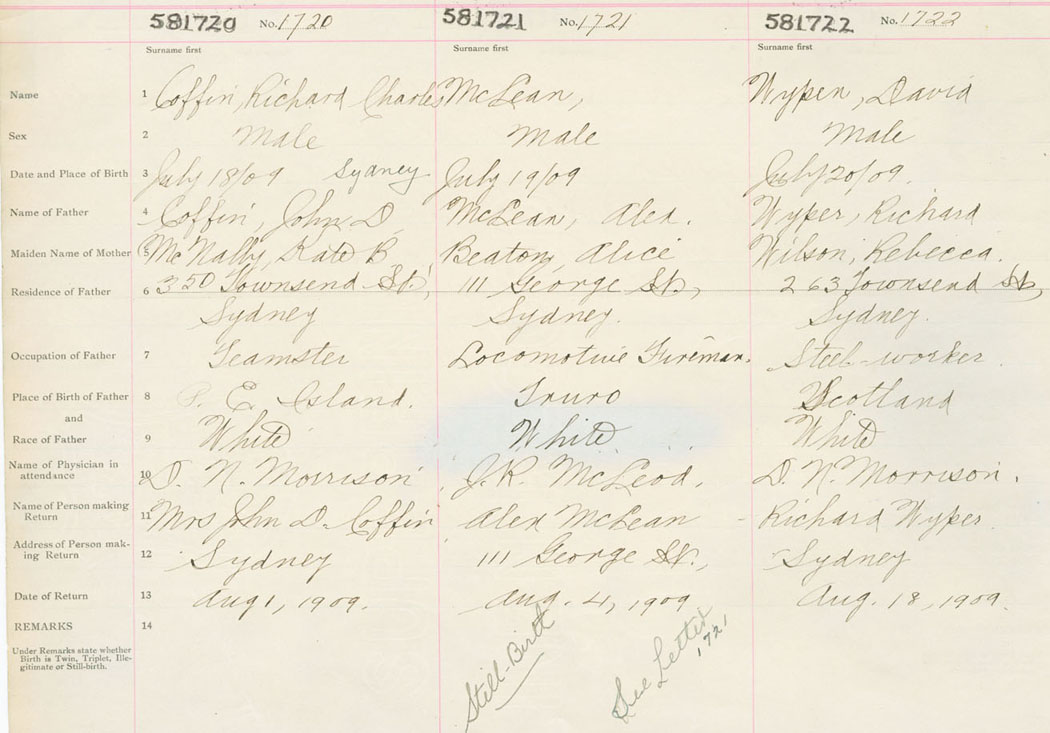 581720 No. 1720 581721 No. 1721 581722 No. 1722
Surname first Surname first Surname first
Name 1 Coffin, Richard Charles McLean, Wyper, David
Sex 2 Male Male Male
Date and Place of Birth 3 July 18/09 Sydney July 19/09 July 20/09.
Name of Father 4 Coffin, John D. McLean, Alex. Wyper, Richard
Maiden Name of Mother 5 McNally, Kate B Beaton, Alice Wilson, Rebecca.
Residence of Father 6 350 Townsend St., 111 George St., 263 Townsend St,
Sydney Sydney. Sydney.
Occupation of Father 7 Teamster Locomotive Fireman. Steel-worker
Place of Birth of Father 8 P. E. Island. Truro Scotland
and
Race of Father 9 White White White
Name of Physician in
attendance 10 D. N. Morrison J. R. McLeod. D. N. Morrison.
Name of Person making
Return 11 Mrs John D. Coffin Alex McLean Richard Wyper
Address of Person mak-
ing Return 12 Sydney 111 George St., Sydney
Date of Return 13 Aug 1, 1909. Aug. 4, 1909 Aug. 18, 1909.
REMARKS 14
Under Remarks state whether
Birth is Twin, Triplet, Ille-
gitimate or Still-birth.
Still-Birth
See Letter
1721